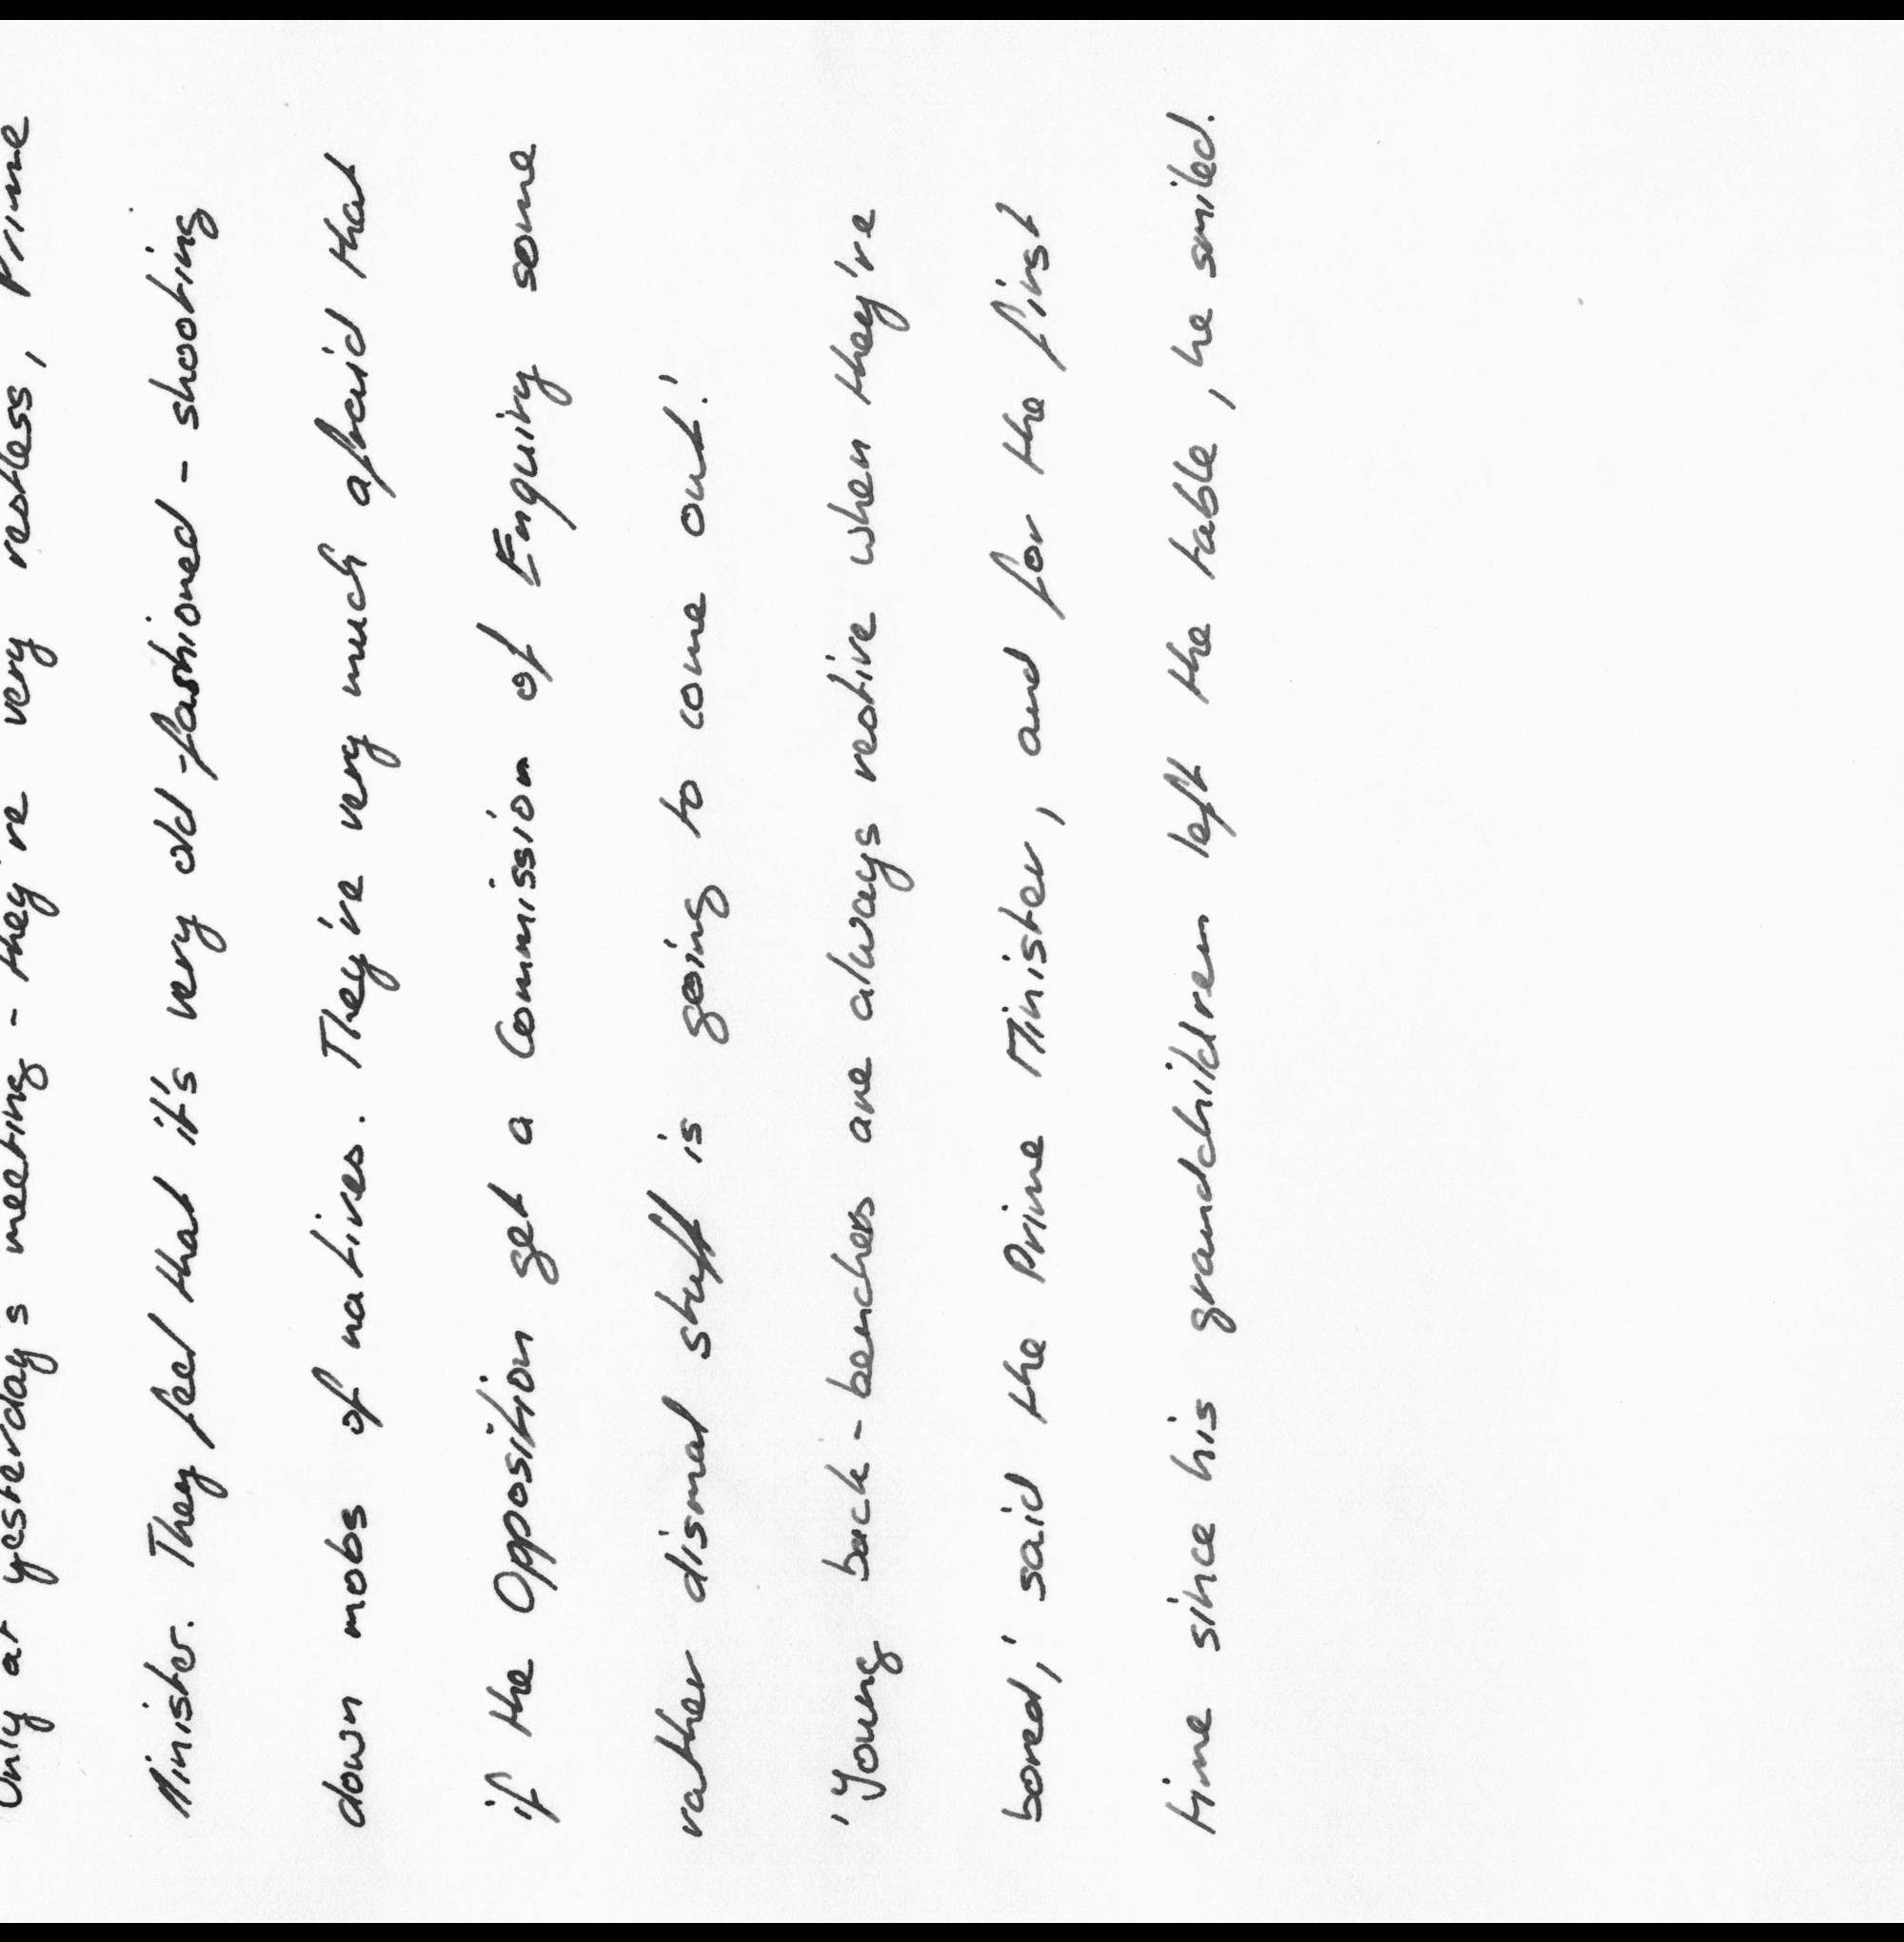 Only at yesterday's meeting - they're very restless, Prime
Minister. They feel that it's very old-fashioned - shooting
down mobs of natives. They're very much afraid that
if the Opposition get a Commission of Enquiry some
rather dismal stuff is going to come out.'
'Young back-benchers are always restive when they're
bored,' said the Prime Minister, and for the first
time since his grandchildren left the table, he smiled.